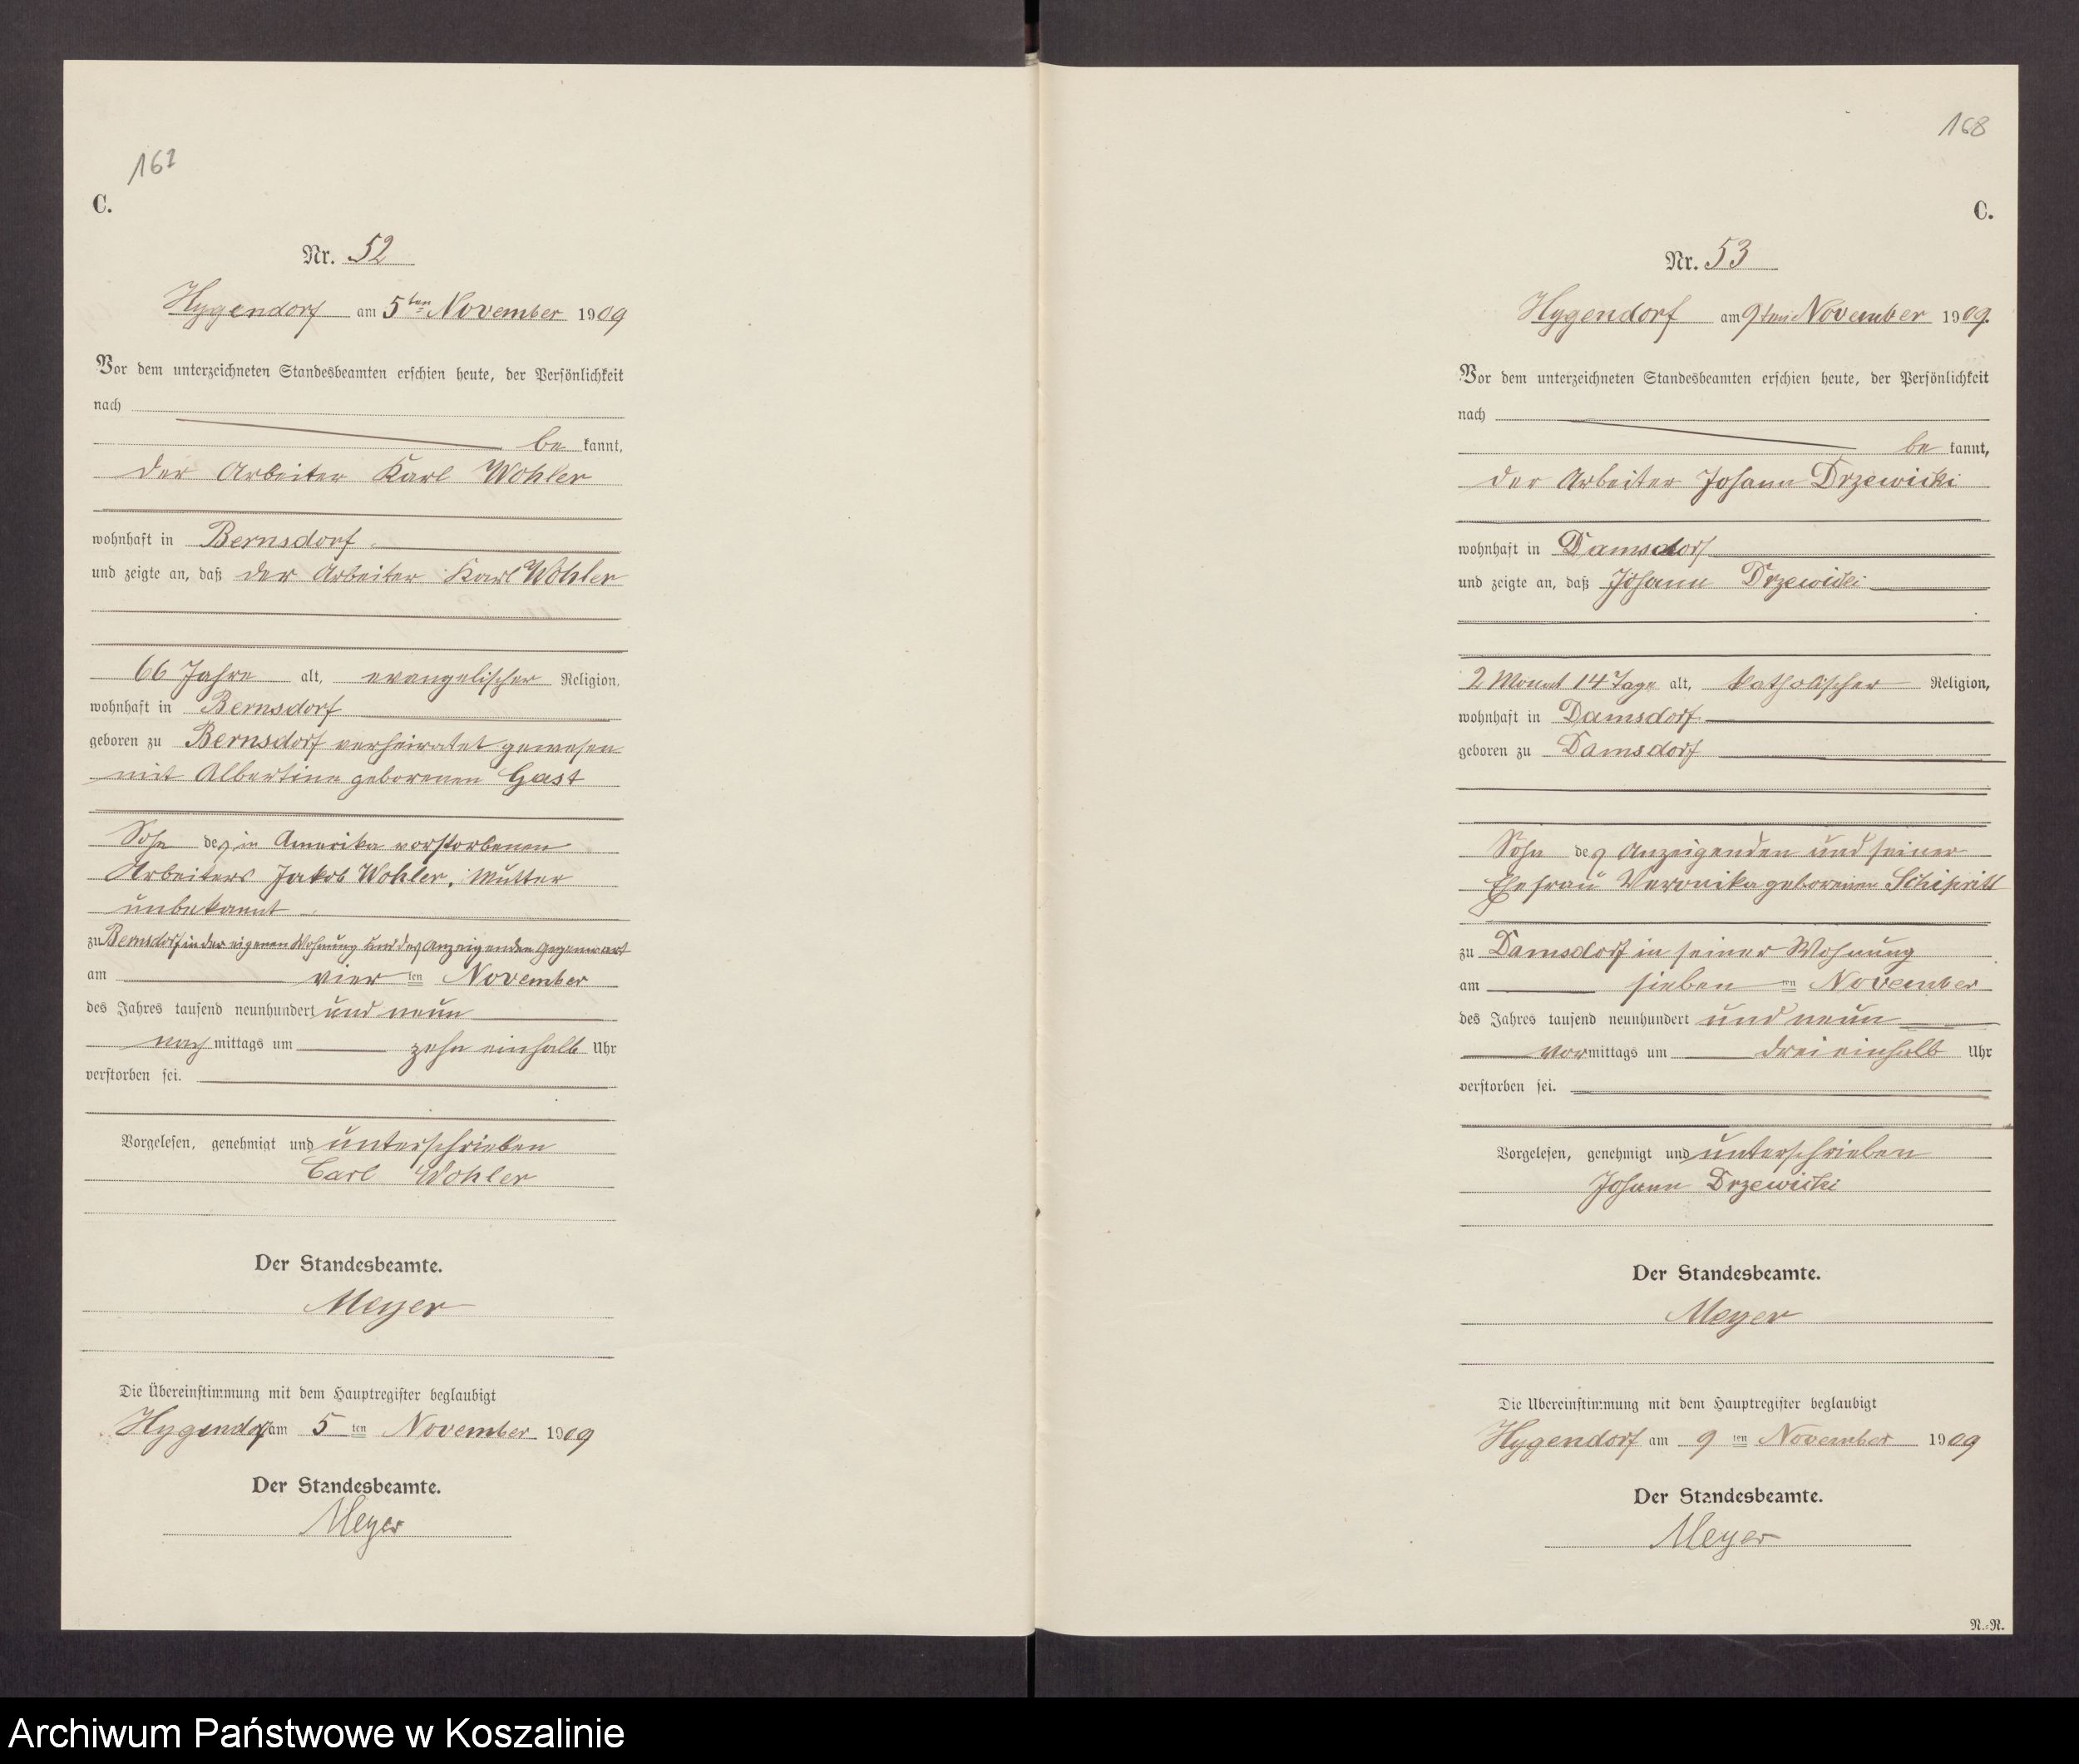 167
C.
Nr. 52
Hygendorf am 5ten November 1909
Vor dem unterzeichneten Standesbeamten erschien heute, der Persönlichkeit
nach
be kannt,
der Arbeiter Karl Wohler
wohnhaft in Bernsdorf
und zeigte an, daß der Arbeiter Karl Wohler
66 Jahre alt, evangelischer Religion,
wohnhaft in Bernsdorf
geboren zu Bernsdorf verheiratet gewesen
mit Albertine geborenen Gast
Sohn des in Amerika verstorbenen
Arbeiters Jakob Wohler, Mutter
unbekannt
zu Bernsdorf in der eigenen Wohnung und des Anzeigenden Gegenwart
am vier ten November
des Jahres tausend neunhundert und neun
nach mittags um zehn einhalb Uhr
verstorben sei.
Vorgelesen, genehmigt und unterschrieben
Carl Wohler
Der Standesbeamte.
Meyer
Die Übereinstimmung mit dem Hauptregister beglaubigt
Hygendorf am 5 ten November 1909
Der Standesbeamte.
Meyer
168
C.
Nr. 53
Hygendorf am 9ten November 1909.
Vor dem unterzeichneten Standesbeamten erschien heute, der Persönlichkeit
nach
be kannt,
der Arbeiter Johann Drzewicki
wohnhaft in Damsdorf
und zeigte an, daß Johann Drzewicki
2 Monat 14 Tage alt, katholischer Religion,
wohnhaft in Damsdorf
geboren zu Damsdorf
Sohn des Anzeigenden und seiner
Ehefrau Veronika geborenen
zu Damsdorf in seiner Wohnung
am sieben ten November
des Jahres tausend neunhundert und neun
vor mittags um drei einhalb Uhr
verstorben sei.
Vorgelesen, genehmigt und unterschrieben
Johann Drzewicki
Der Standesbeamte.
Meyer
Die Übereinstimmung mit dem Hauptregister beglaubigt
Hygendorf am 9 ten November 1909
Der Standesbeamte.
Meyer
N.-N.
Archiwum Państwowe w Koszalinie